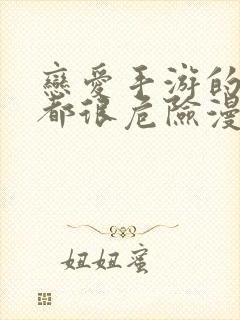 戀愛手游的
都很危險漫
妞妞蜜